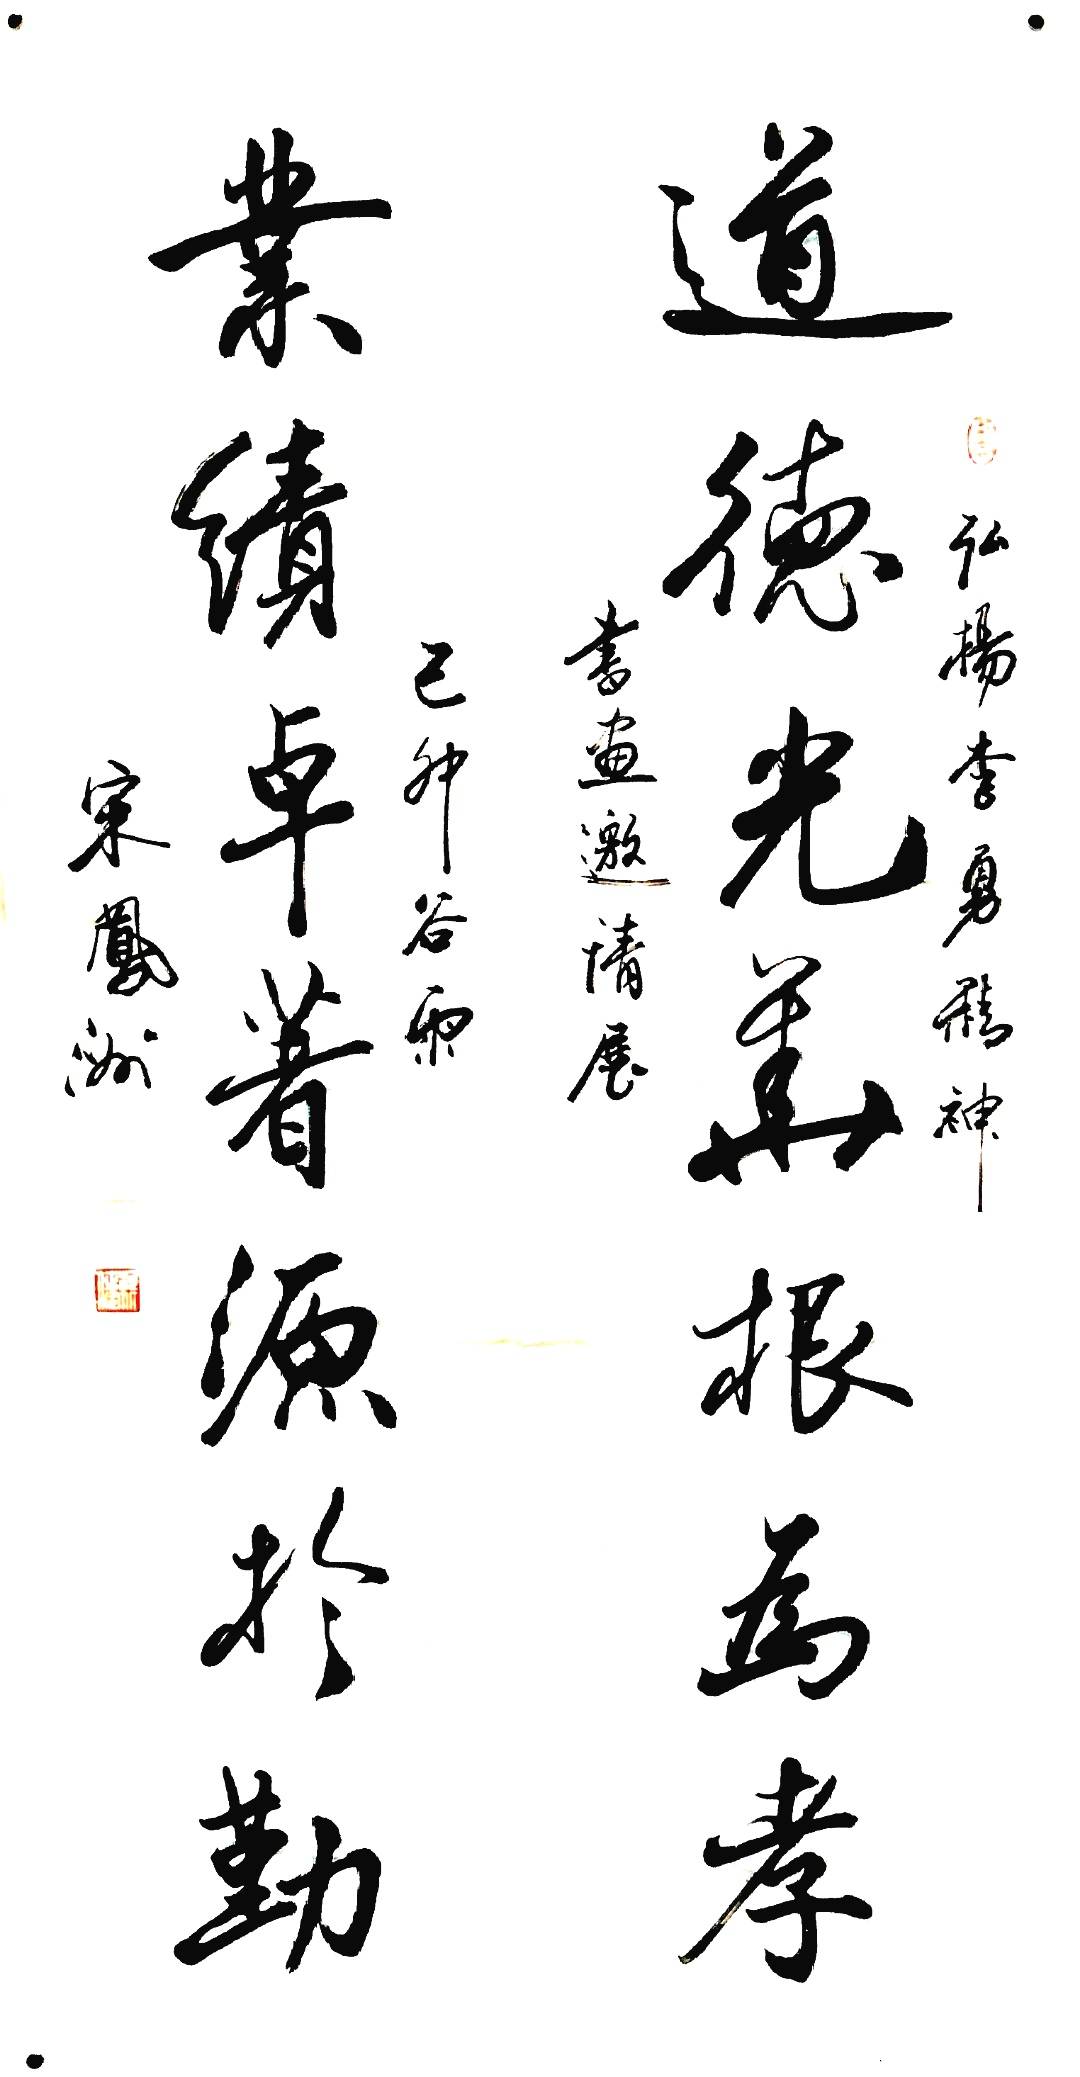 弘揚李勇精神
道德光華根為孝
書画邀請展
己卯谷雨
業績卓著源於勤
宋鳳洲